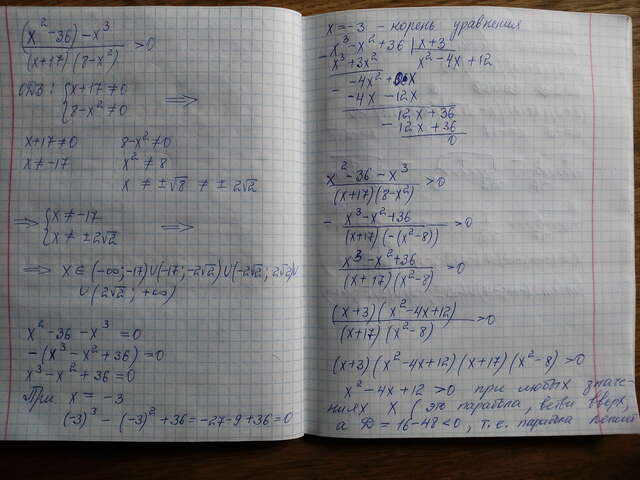 (x² - 36) - x³ / (x+17)(8-x²) > 0
ОДЗ: { x+17 ≠ 0
{ 8-x² ≠ 0 ⟹
x+17 ≠ 0   8-x² ≠ 0
x ≠ -17   x² ≠ 8
x ≠ ±√8 ≠ ±2√2
⟹ { x ≠ -17
{ x ≠ ±2√2 ⟹
⟹ x ∈ (-∞; -17)∪(-17; -2√2)∪(-2√2; 2√2)∪
∪(2√2; +∞)
x² - 36 - x³ = 0
-(x³ - x² + 36) = 0
x³ - x² + 36 = 0
При x = -3
(-3)³ - (-3)² + 36 = -27 - 9 + 36 = 0
x = -3 - корень уравнения
- x³ - x² + 36 | x+3
x³ + 3x² | x² - 4x + 12
- -4x² + 0x
-4x - 12x
12x + 36
- 12x + 36
0
x² - 36 - x³ / (x+17)(8-x²) > 0
- x³ - x² + 36 / (x+17)(-(x²-8)) > 0
x³ - x² + 36 / (x+17)(x²-8) > 0
(x+3)(x² - 4x + 12) / (x+17)(x²-8) > 0
(x+3)(x² - 4x + 12)(x+17)(x²-8) > 0
x² - 4x + 12 > 0 при любых значе-
ниях x (это парабола, ветви вверх,
а D = 16 - 48 < 0, т.е. парабола